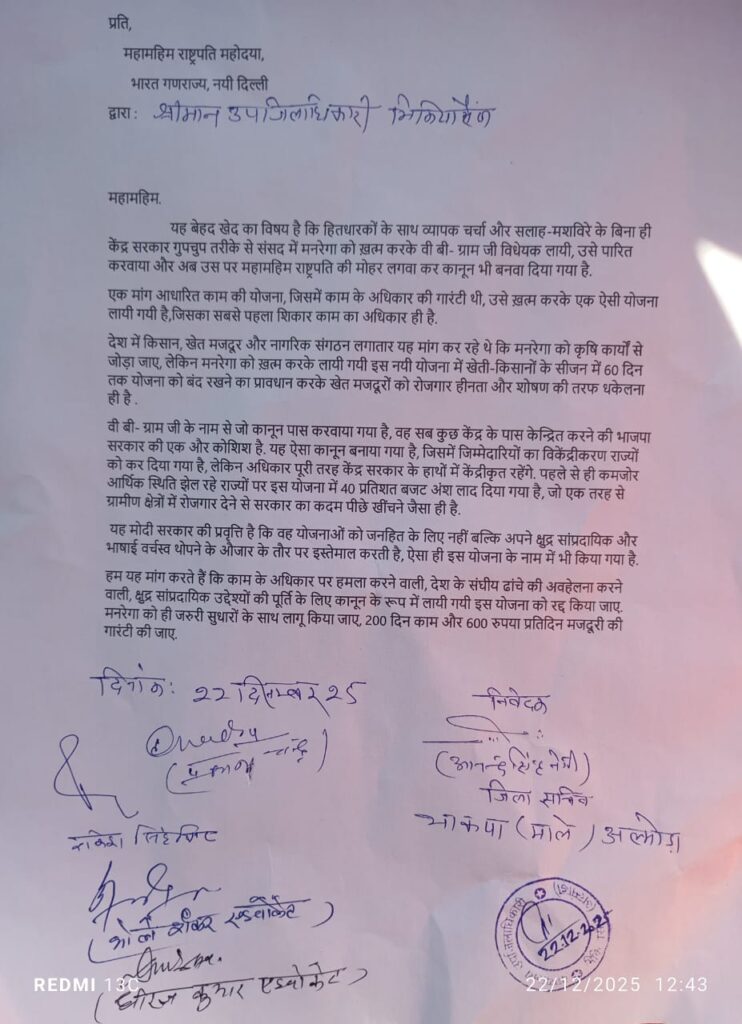 प्रति,
महामहिम राष्ट्रपति महोदया,
भारत गणराज्य, नयी दिल्ली
द्वारा: श्रीमान उपजिलाधिकारी भिकियासैंण
महामहिम.
यह बेहद खेद का विषय है कि हितधारकों के साथ व्यापक चर्चा और सलाह-मशविरे के बिना ही
केंद्र सरकार गुपचुप तरीके से संसद में मनरेगा को ख़त्म करके वी बी- ग्राम जी विधेयक लायी, उसे पारित
करवाया और अब उस पर महामहिम राष्ट्रपति की मोहर लगवा कर कानून भी बनवा दिया गया है.
एक मांग आधारित काम की योजना, जिसमें काम के अधिकार की गारंटी थी, उसे ख़त्म करके एक ऐसी योजना
लायी गयी है,जिसका सबसे पहला शिकार काम का अधिकार ही है.
देश में किसान, खेत मजदूर और नागरिक संगठन लगातार यह मांग कर रहे थे कि मनरेगा को कृषि कार्यों से
जोड़ा जाए, लेकिन मनरेगा को ख़त्म करके लायी गयी इस नयी योजना में खेती-किसानों के सीजन में 60 दिन
तक योजना को बंद रखने का प्रावधान करके खेत मजदूरों को रोजगार हीनता और शोषण की तरफ धकेलना
ही है .
वी बी- ग्राम जी के नाम से जो कानून पास करवाया गया है, वह सब कुछ केंद्र के पास केन्द्रित करने की भाजपा
सरकार की एक और कोशिश है. यह ऐसा कानून बनाया गया है, जिसमें जिम्मेदारियों का विकेंद्रीकरण राज्यों
को कर दिया गया है, लेकिन अधिकार पूरी तरह केंद्र सरकार के हाथों में केंद्रीकृत रहेंगे. पहले से ही कमजोर
आर्थिक स्थिति झेल रहे राज्यों पर इस योजना में 40 प्रतिशत बजट अंश लाद दिया गया है, जो एक तरह से
ग्रामीण क्षेत्रों में रोजगार देने से सरकार का कदम पीछे खींचने जैसा ही है.
यह मोदी सरकार की प्रवृत्ति है कि वह योजनाओं को जनहित के लिए नहीं बल्कि अपने क्षुद्र सांप्रदायिक और
भाषाई वर्चस्व थोपने के औजार के तौर पर इस्तेमाल करती है, ऐसा ही इस योजना के नाम में भी किया गया है.
हम यह मांग करते हैं कि काम के अधिकार पर हमला करने वाली, देश के संघीय ढांचे की अवहेलना करने
वाली, क्षुद्र सांप्रदायिक उद्देश्यों की पूर्ति के लिए कानून के रूप में लायी गयी इस योजना को रद्द किया जाए.
मनरेगा को ही जरुरी सुधारों के साथ लागू किया जाए, 200 दिन काम और 600 रुपया प्रतिदिन मजदूरी की
गारंटी की जाए.
दिनांक: 22 दिसम्बर 25
निवेदक
(आनन्द सिंह नेगी)
जिला सचिव
भाकपा (माले) अल्मोड़ा
राकेश सिंह बिष्ट
(भोले शंकर एडवोकेट)
(धीरज कुमार एडवोकेट)
22.12.2025
REDMI 13C
22/12/2025 12:43